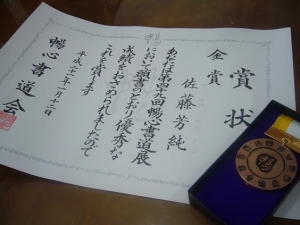 賞状
金賞
佐藤芳純
あなたは第四十九回暢心書道展
において頭書のとおり優秀な
成績をおさめられましたので
これを賞します
平成二十一年一月十二日
暢心書道会